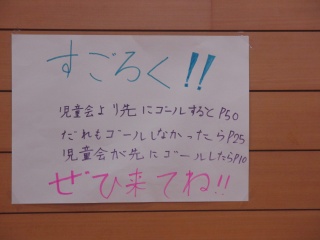 すごろく!!
児童会より先にゴールするとP50
だれもゴールしなかったらP25
児童会が先にゴールしたらP10
ぜひ来てね!!